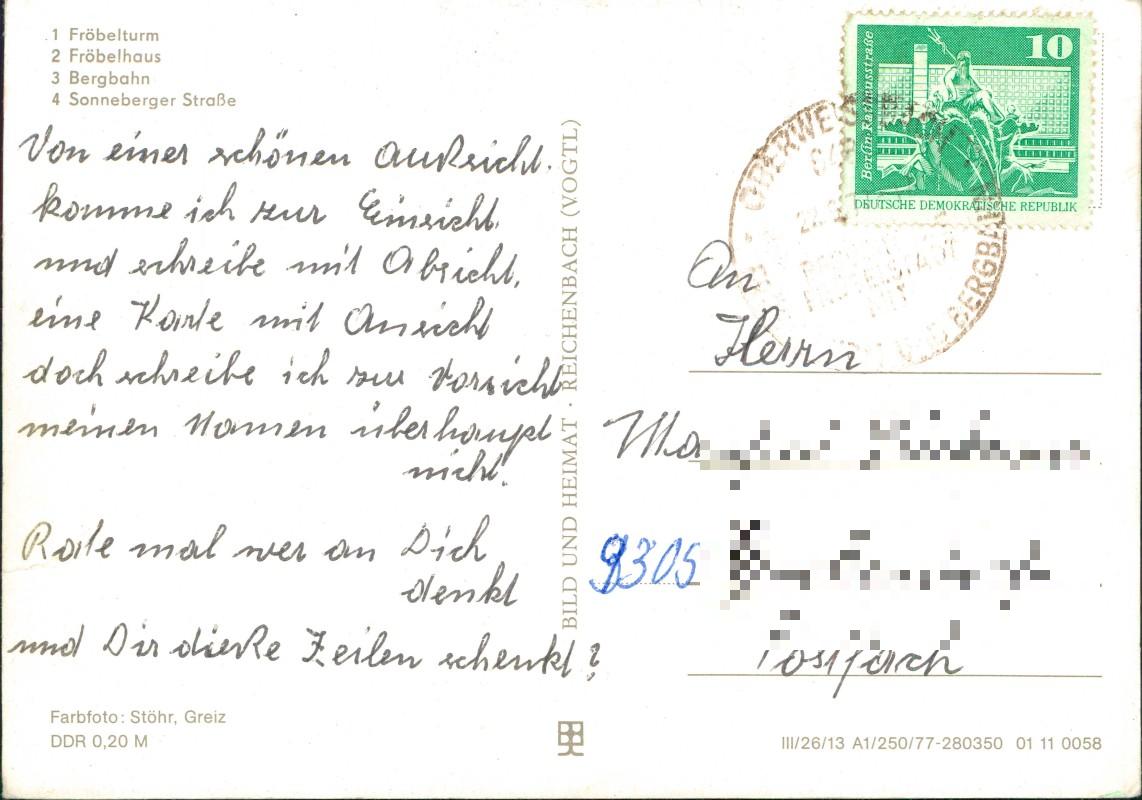 1 Fröbelturm
2 Fröbelhaus
3 Bergbahn
4 Sonneberger Straße
Von einer schönen Aussicht.
komme ich zur Einsicht,
und schreibe mit Absicht,
eine Karte mit Ansicht
doch schreibe ich zur Vorsicht
meinen Namen überhaupt
nicht!
Rate mal wer an Dich
denkt
und Dir diese Zeilen schenkt?
Farbfoto: Stöhr, Greiz
DDR 0,20 M
BILD UND HEIMAT · REICHENBACH (VOGTL)
10
Berlin·Rathausstraße
DEUTSCHE DEMOKRATISCHE REPUBLIK
OBERWEISSBACH
BERGBAHN
An
Herrn
9305
Postfach
III/26/13 A1/250/77-280350 01 11 0058